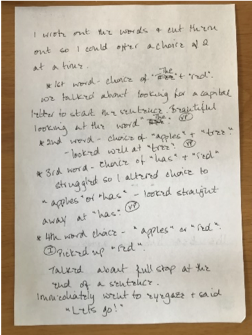 I wrote out the words & cut them
out so I could offer a choice of 2
at a time.
* 1st word - choice of "The" + "red".
We talked about looking for a capital
letter to start the sentence. Beautiful
looking at the word "The" (VP)
* 2nd word - choice of "apples" + "tree"
- looked well at "tree". (VP)
* 3rd word - choice of "has" + "red"
struggled so I altered choice to
"apples" or "has" - looked straight
away at "has" (VP)
* 4th word choice - "apples" or "red".
Picked up "red".
Talked about full stop at the
end of a sentence.
Immediately went to eyegaze + said
"Lets go!"